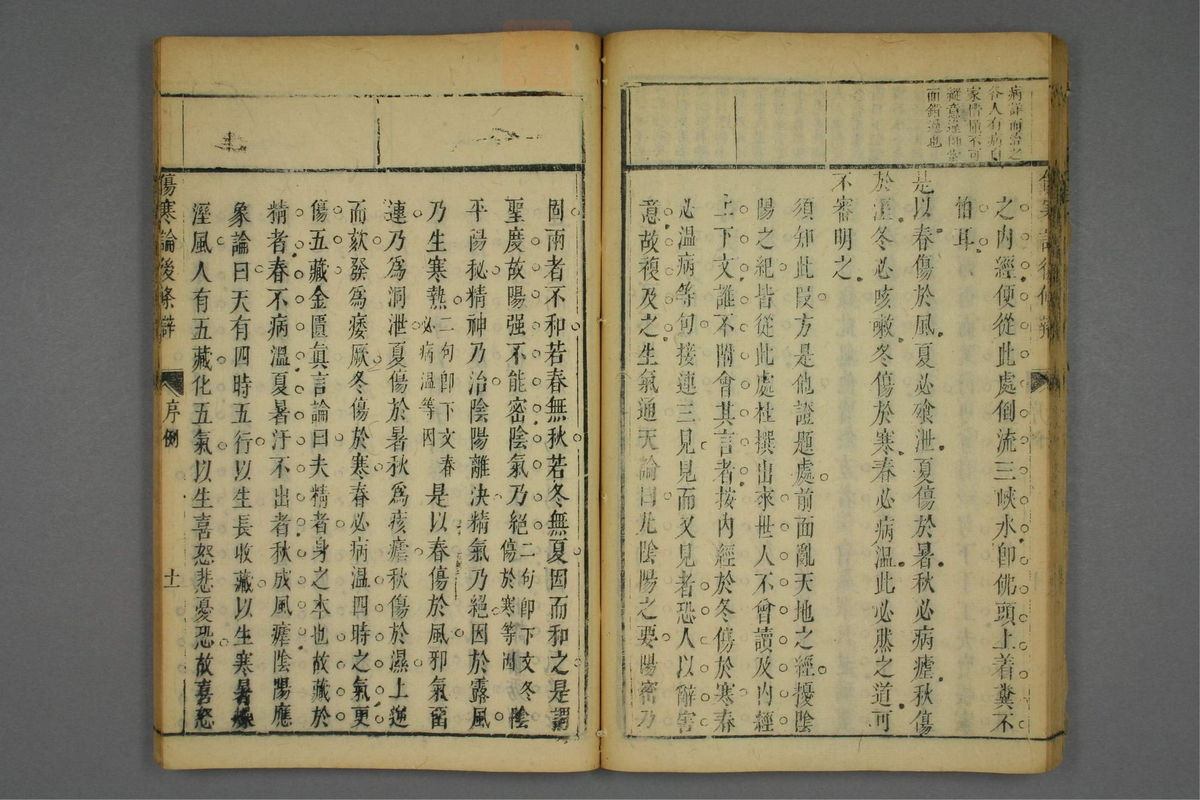 病詳而治之
谷人有病自
家情願不可
縱意違師掌
而錯過也
之內經便從此處倒流三峽水卽佛頭上着糞不
怕耳
是以春傷於風夏必飧泄夏傷於暑秋必病瘧秋傷
於溼冬必咳嗽冬傷於寒春必病溫此必然之道可
不審明之
須知此段方是他證題處前面亂天地之經擾陰
陽之紀皆從此處杜撰出來世人不會讀及內經
上下文誰不附會其言者按內經於冬傷於寒春
必溫病等句接連三見見而又見者恐人以辭害
意故複及之生氣通天論曰凡陰陽之要陽密乃
固兩者不和若春無秋若冬無夏因而和之是謂
聖度故陽强不能密陰氣乃絕二句卽下文冬傷於寒等因陰
平陽秘精神乃治陰陽離決精氣乃絕因於露風
乃生寒熱二句卽下文春必病溫等因是以春傷於風邪氣留
連乃爲洞泄夏傷於暑秋爲痎瘧秋傷於濕上逆
而欬發爲痿厥冬傷於寒春必病溫四時之氣更
傷五藏金匱眞言論曰夫精者身之本也故藏於
精者春不病溫夏暑汗不出者秋成風瘧陰陽應
象論曰天有四時五行以生長收藏以生寒暑燥
溼風人有五藏化五氣以生喜怒悲憂恐故喜怒
傷寒論後條辯
序例
十一